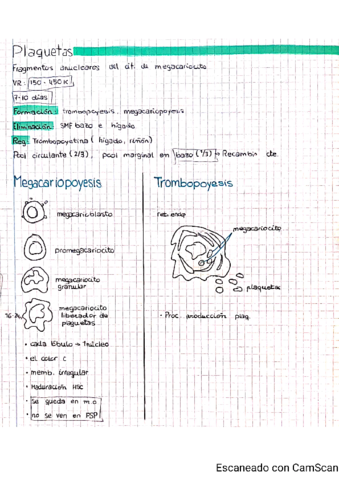 Plaquetas
Fragmentos anucleares del cit. de megacariocito
VR: 150 - 450 K
7-10 días
Formación: trombopoyesis, megacariopoyesis
Eliminación: SMF bazo e hígado
Reg: Trombopoyetina (hígado, riñón)
Pool circulante (2/3), pool marginal en bazo (1/3) → Recambio cte
Megacariopoyesis
megacarioblasto
promegacariocito
megacariocito
granular
megacariocito
liberador de
plaquetas
• cada lóbulo → 1 núcleo
• el color c
• memb. irregular
• Maduración HSC
• se queda en m.o
• no se ven en FSP
Trombopoyesis
megacariocito
plaquetas
• Proc. producción plaq.
Escaneado con CamScan